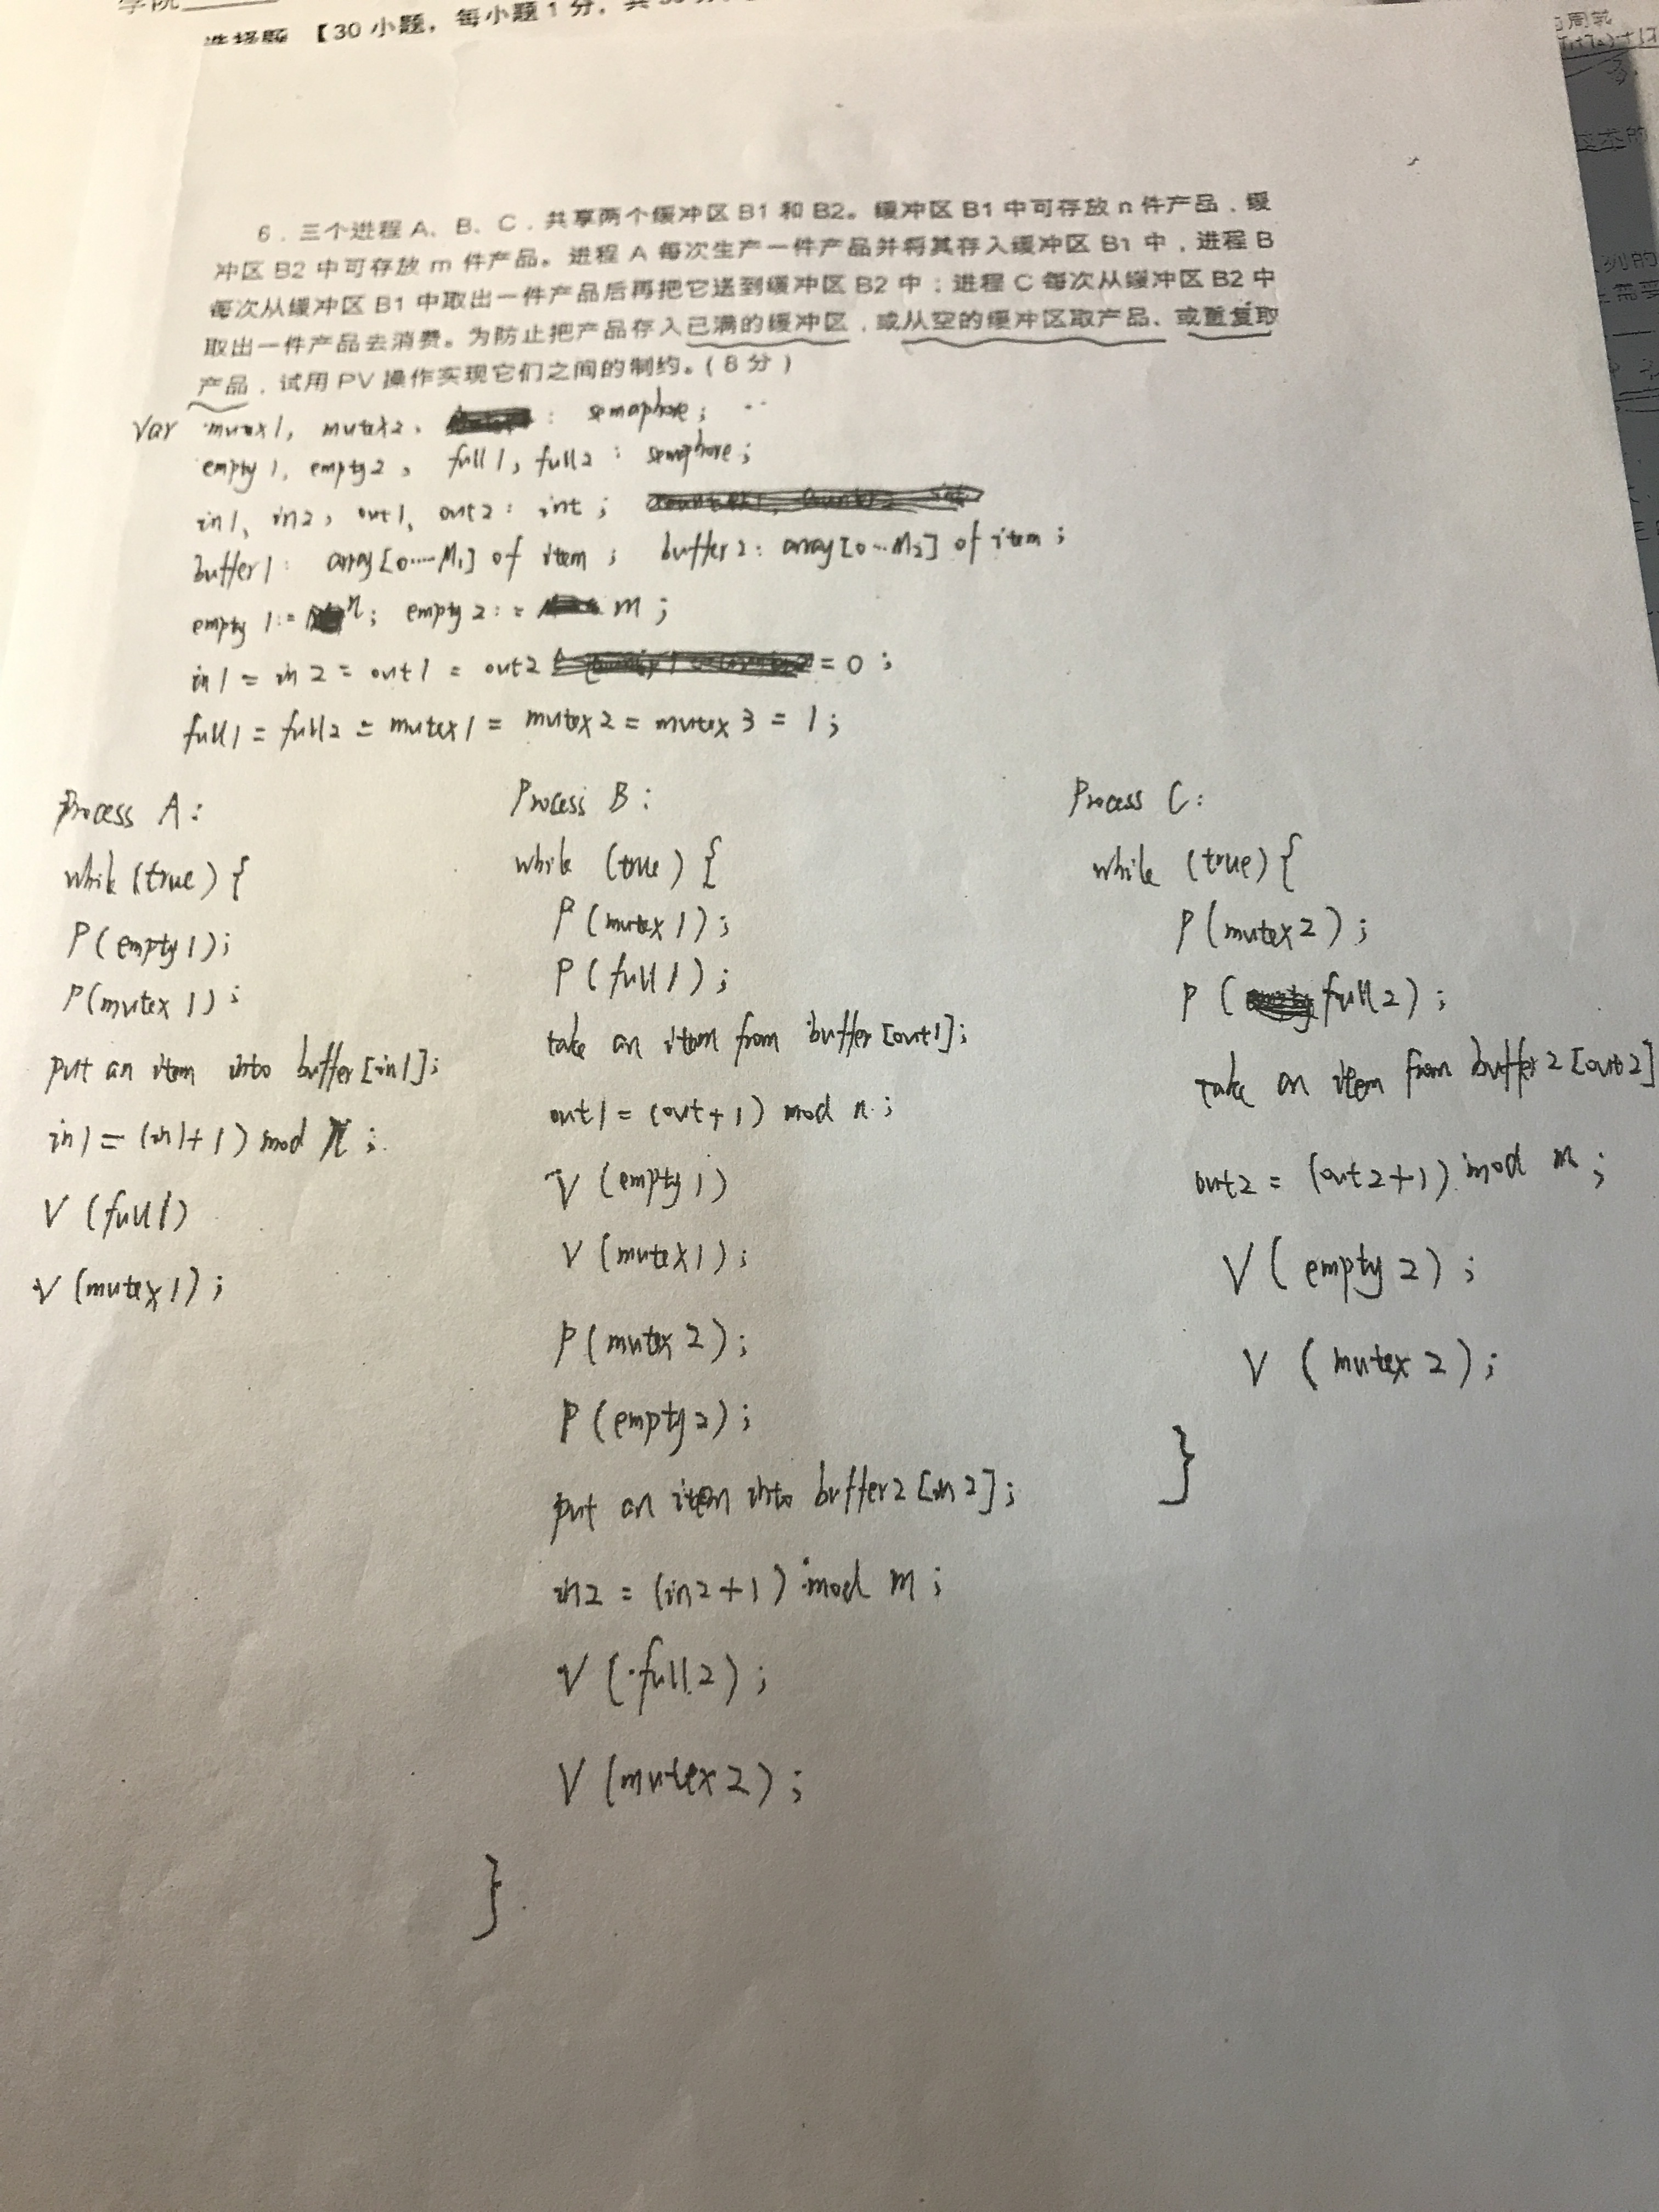 学院
选择题 【30 小题，每小题 1 分，共
6．三个进程 A、B、C，共享两个缓冲区 B1 和 B2。缓冲区 B1 中可存放 n 件产品，缓
冲区 B2 中可存放 m 件产品。进程 A 每次生产一件产品并将其存入缓冲区 B1 中，进程 B
每次从缓冲区 B1 中取出一件产品后再把它送到缓冲区 B2 中；进程 C 每次从缓冲区 B2 中
取出一件产品去消费。为防止把产品存入已满的缓冲区，或从空的缓冲区取产品、或重复取
产品，试用 PV 操作实现它们之间的制约。(8 分)
Var mutex1, mutex2, : semaphore;
empty1, empty2, full1, full2 : semaphore;
in1, in2, out1, out2 : int;
buffer1: array[0....M1] of item; buffer2: array[0...M2] of item;
empty1:= n; empty2:= m;
in1 = in2 = out1 = out2 = 0;
full1 = full2 = mutex1 = mutex2 = mutex3 = 1;
Process A:
while (true) {
P(empty1);
P(mutex1);
put an item into buffer[in1];
in1 = (in1+1) mod n;
V(full1)
V(mutex1);
Process B:
while (true) {
P(mutex1);
P(full1);
take an item from buffer[out1];
out1 = (out+1) mod n;
V(empty1)
V(mutex1);
P(mutex2);
P(empty2);
put an item into buffer2[in2];
in2 = (in2+1) mod m;
V(full2);
V(mutex2);
}
Process C:
while (true) {
P(mutex2);
P(full2);
take an item from buffer2[out2]
out2 = (out2+1) mod m;
V(empty2);
V(mutex2);
}